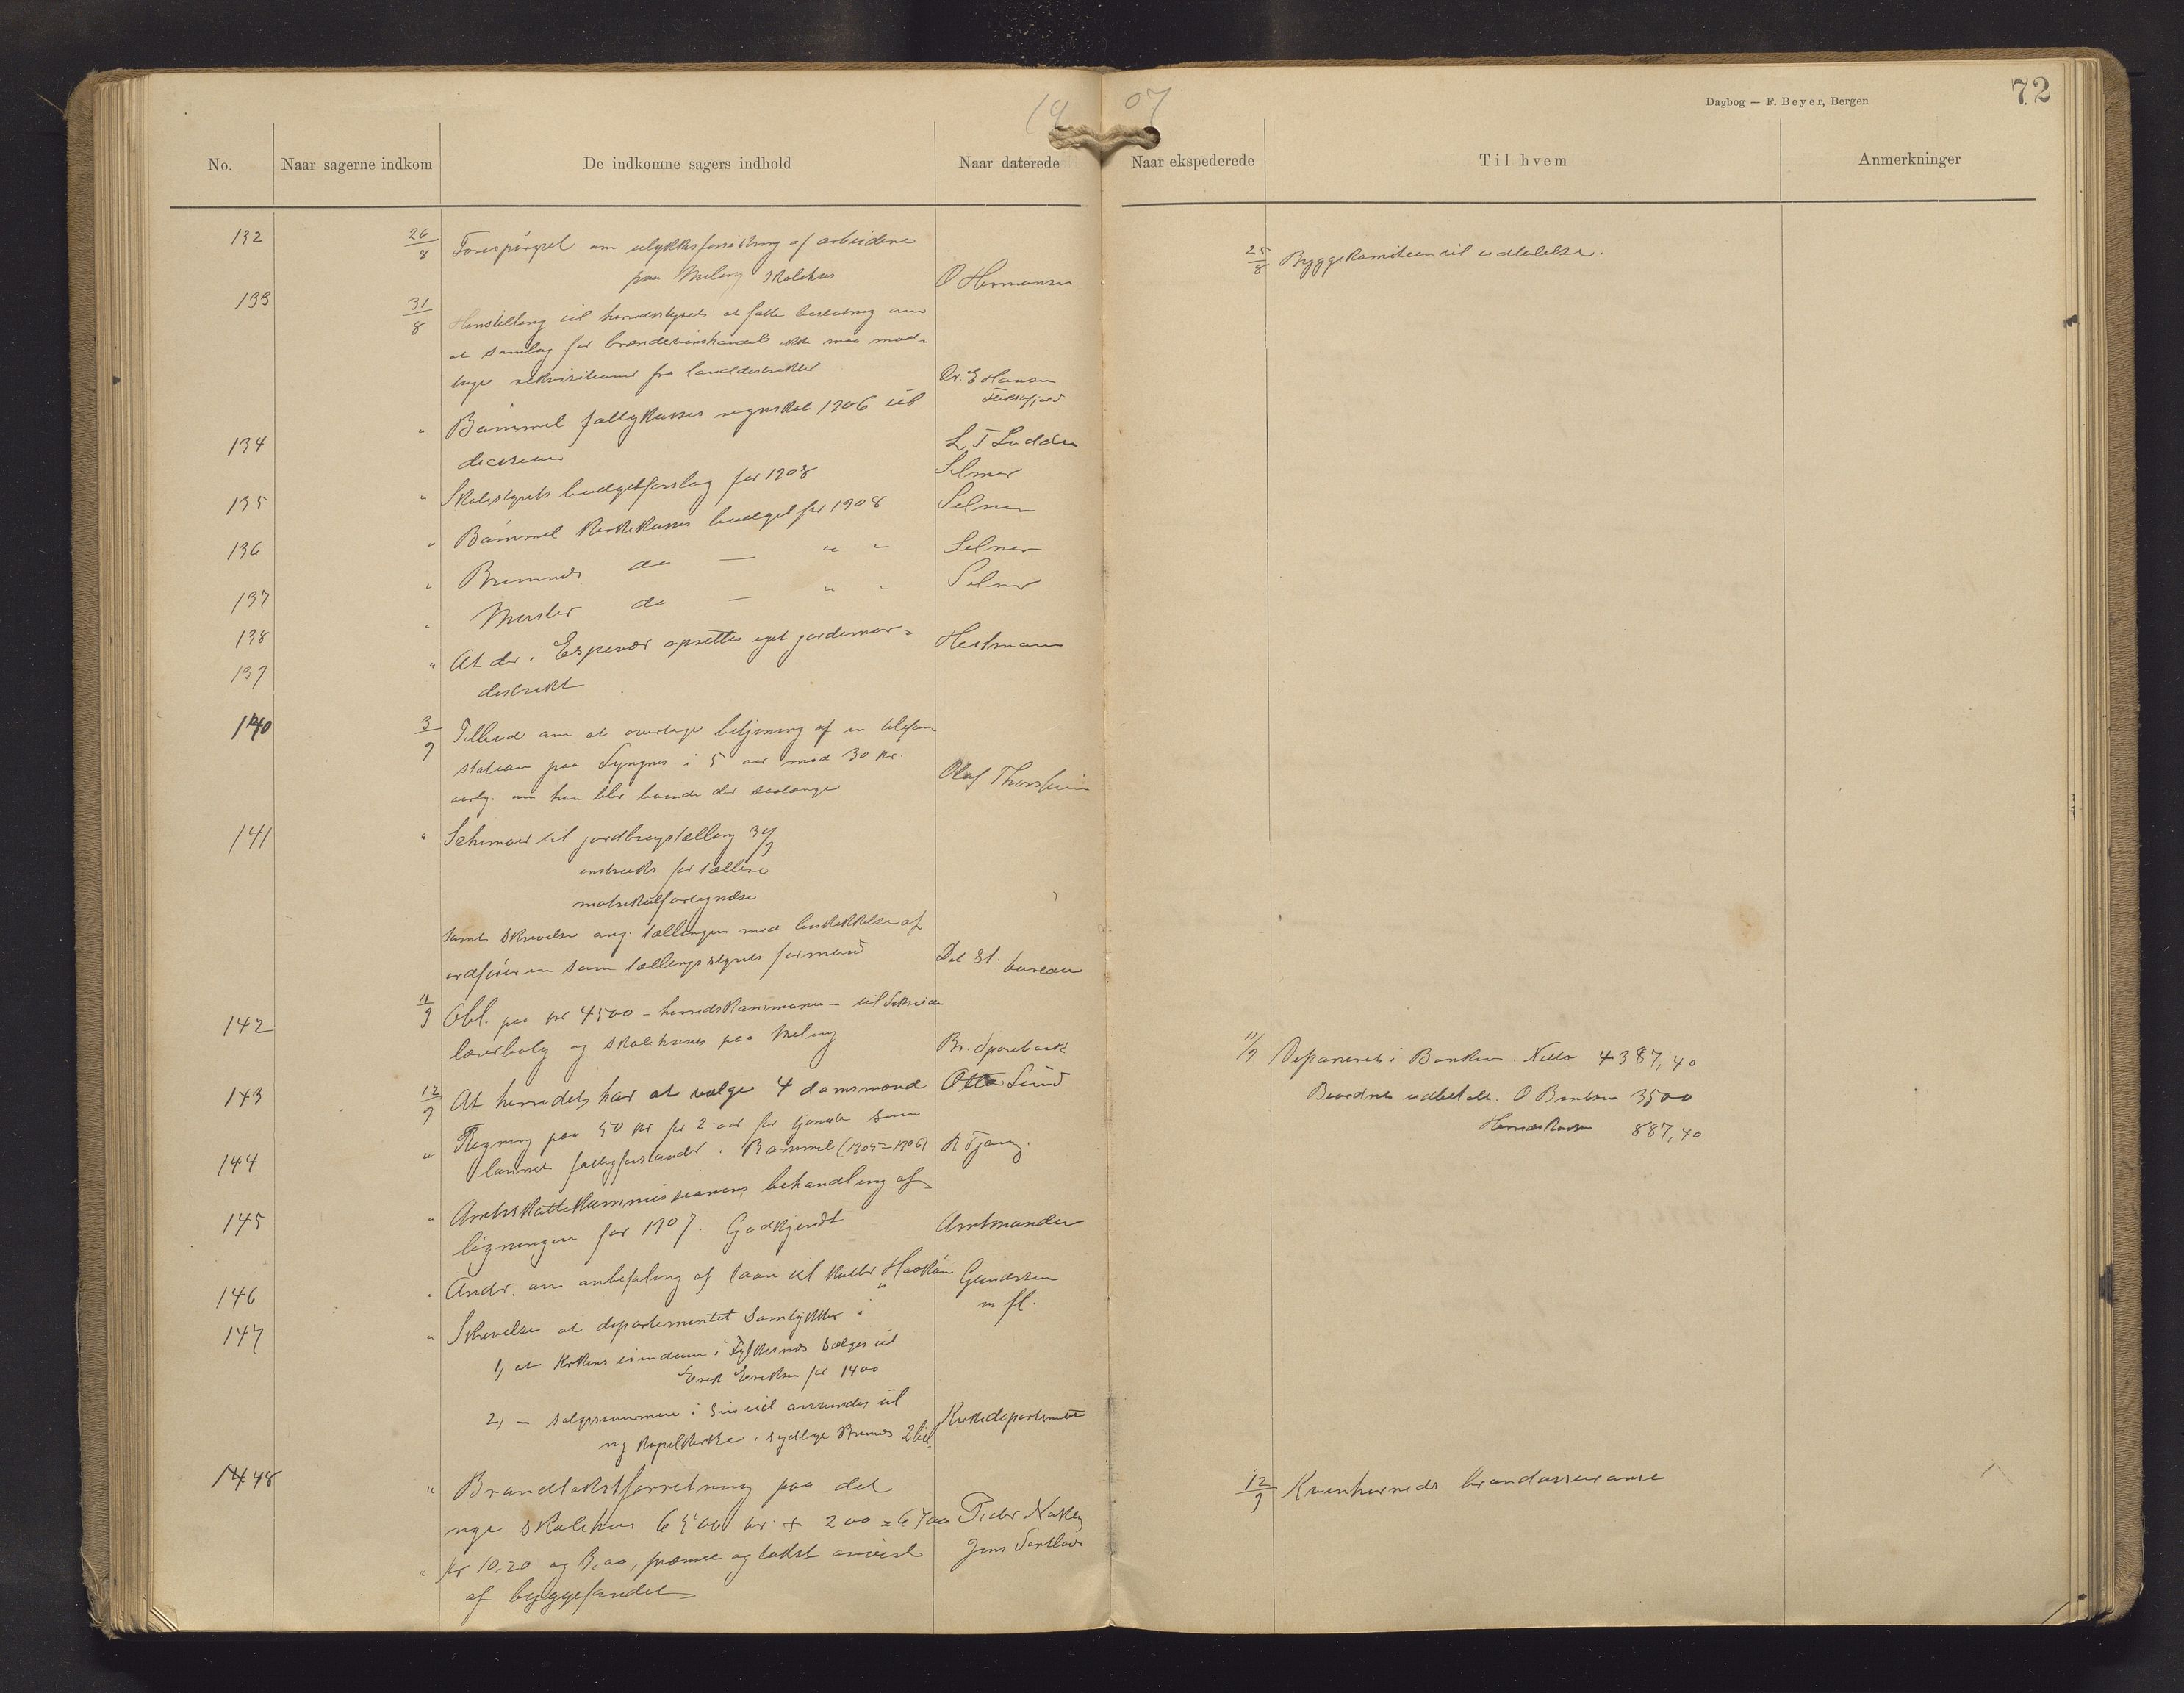 1907
Dagbog — F. Beyer, Bergen
72
No. Naar sagerne indkom De indkomne sagers indhold Naar daterede Naar ekspederede Til hvem Anmerkninger
132 26/8 Forespørgsel om ulykkesforsikring af arbeiderne
paa Meling skolehus O Hermansen 25/8 Byggekomiteen til udtalelse.
133 31/8 Henstilling til herredsstyret at fatte beslutning om
at samlag for brændevinshandel ikke maa mod-
tage rekvisitioner fra landdistrikter Dr. E Hansen
134 " Bømmel fattigkasses regnskab 1906 til
decision L T Lodden
135 " Skolestyrets budgetforslag for 1908 Selmer
136 " Bømmel Kirkekasses budget for 1908 Selmer
137 " Bremnes do — " " Selmer
138 " Moster do — " " Selmer
139 " At der i Espevær oprettes eget jordemor-
distrikt Heitmann
140 3/9 Tilbud om at overtage betjening af en telefon-
station paa Lyngnes i 5 aar mod 30 kr.
aarlig. om han blir boende der saalænge Olaf
141 " Schemaer til jordbrugstælling 30/9
instruks for tællere
matrikulfortegnelse
samt skrivelse ang. tællingen med beskikkelse af
ordføreren som tællingsstyrets formand Det st. bureau
142 11/9 Obl. paa kr 4500 - herredskasselaan - til
lærerbolig og skolehuset paa Meling Br. Sparebank 11/9 Deponeret i Banken. Netto 4387,40
Beordret udbetalt. O Bentsen 3500
Herredskassen 887,40
143 12/9 At herredet har at vælge 4 domsmænd Otto Lund
144 " Regning paa 50 kr for 2 aar for tjeneste som
lønnet fattigforstander i Bømmel (1905-1906)
145 " Amtsskattekommissionens behandling af
ligningen for 1907. Godkjendt Amtmanden
146 " Andr. om anbefaling af laan til kutter "Haakon" Gundersen
m fl.
147 " Skrivelse at departementet samtykker i
1, at Kirkens eiendom i Fylkesnes sælges til
Erik Eriksen for 1400
2, — salgssummen i sin tid anvendes til
ny kapelkirke i sydlige Bremnes 2 bil. Kirkedepartementet
148 " Brandtakstforretning paa det
nye skolehus 6500 kr + 200 = 6700 Peder
" kr 10,20 og 3,00, præmie og takst anvist Jens
af byggefondet
12/9 Kvinherreds brandassurance